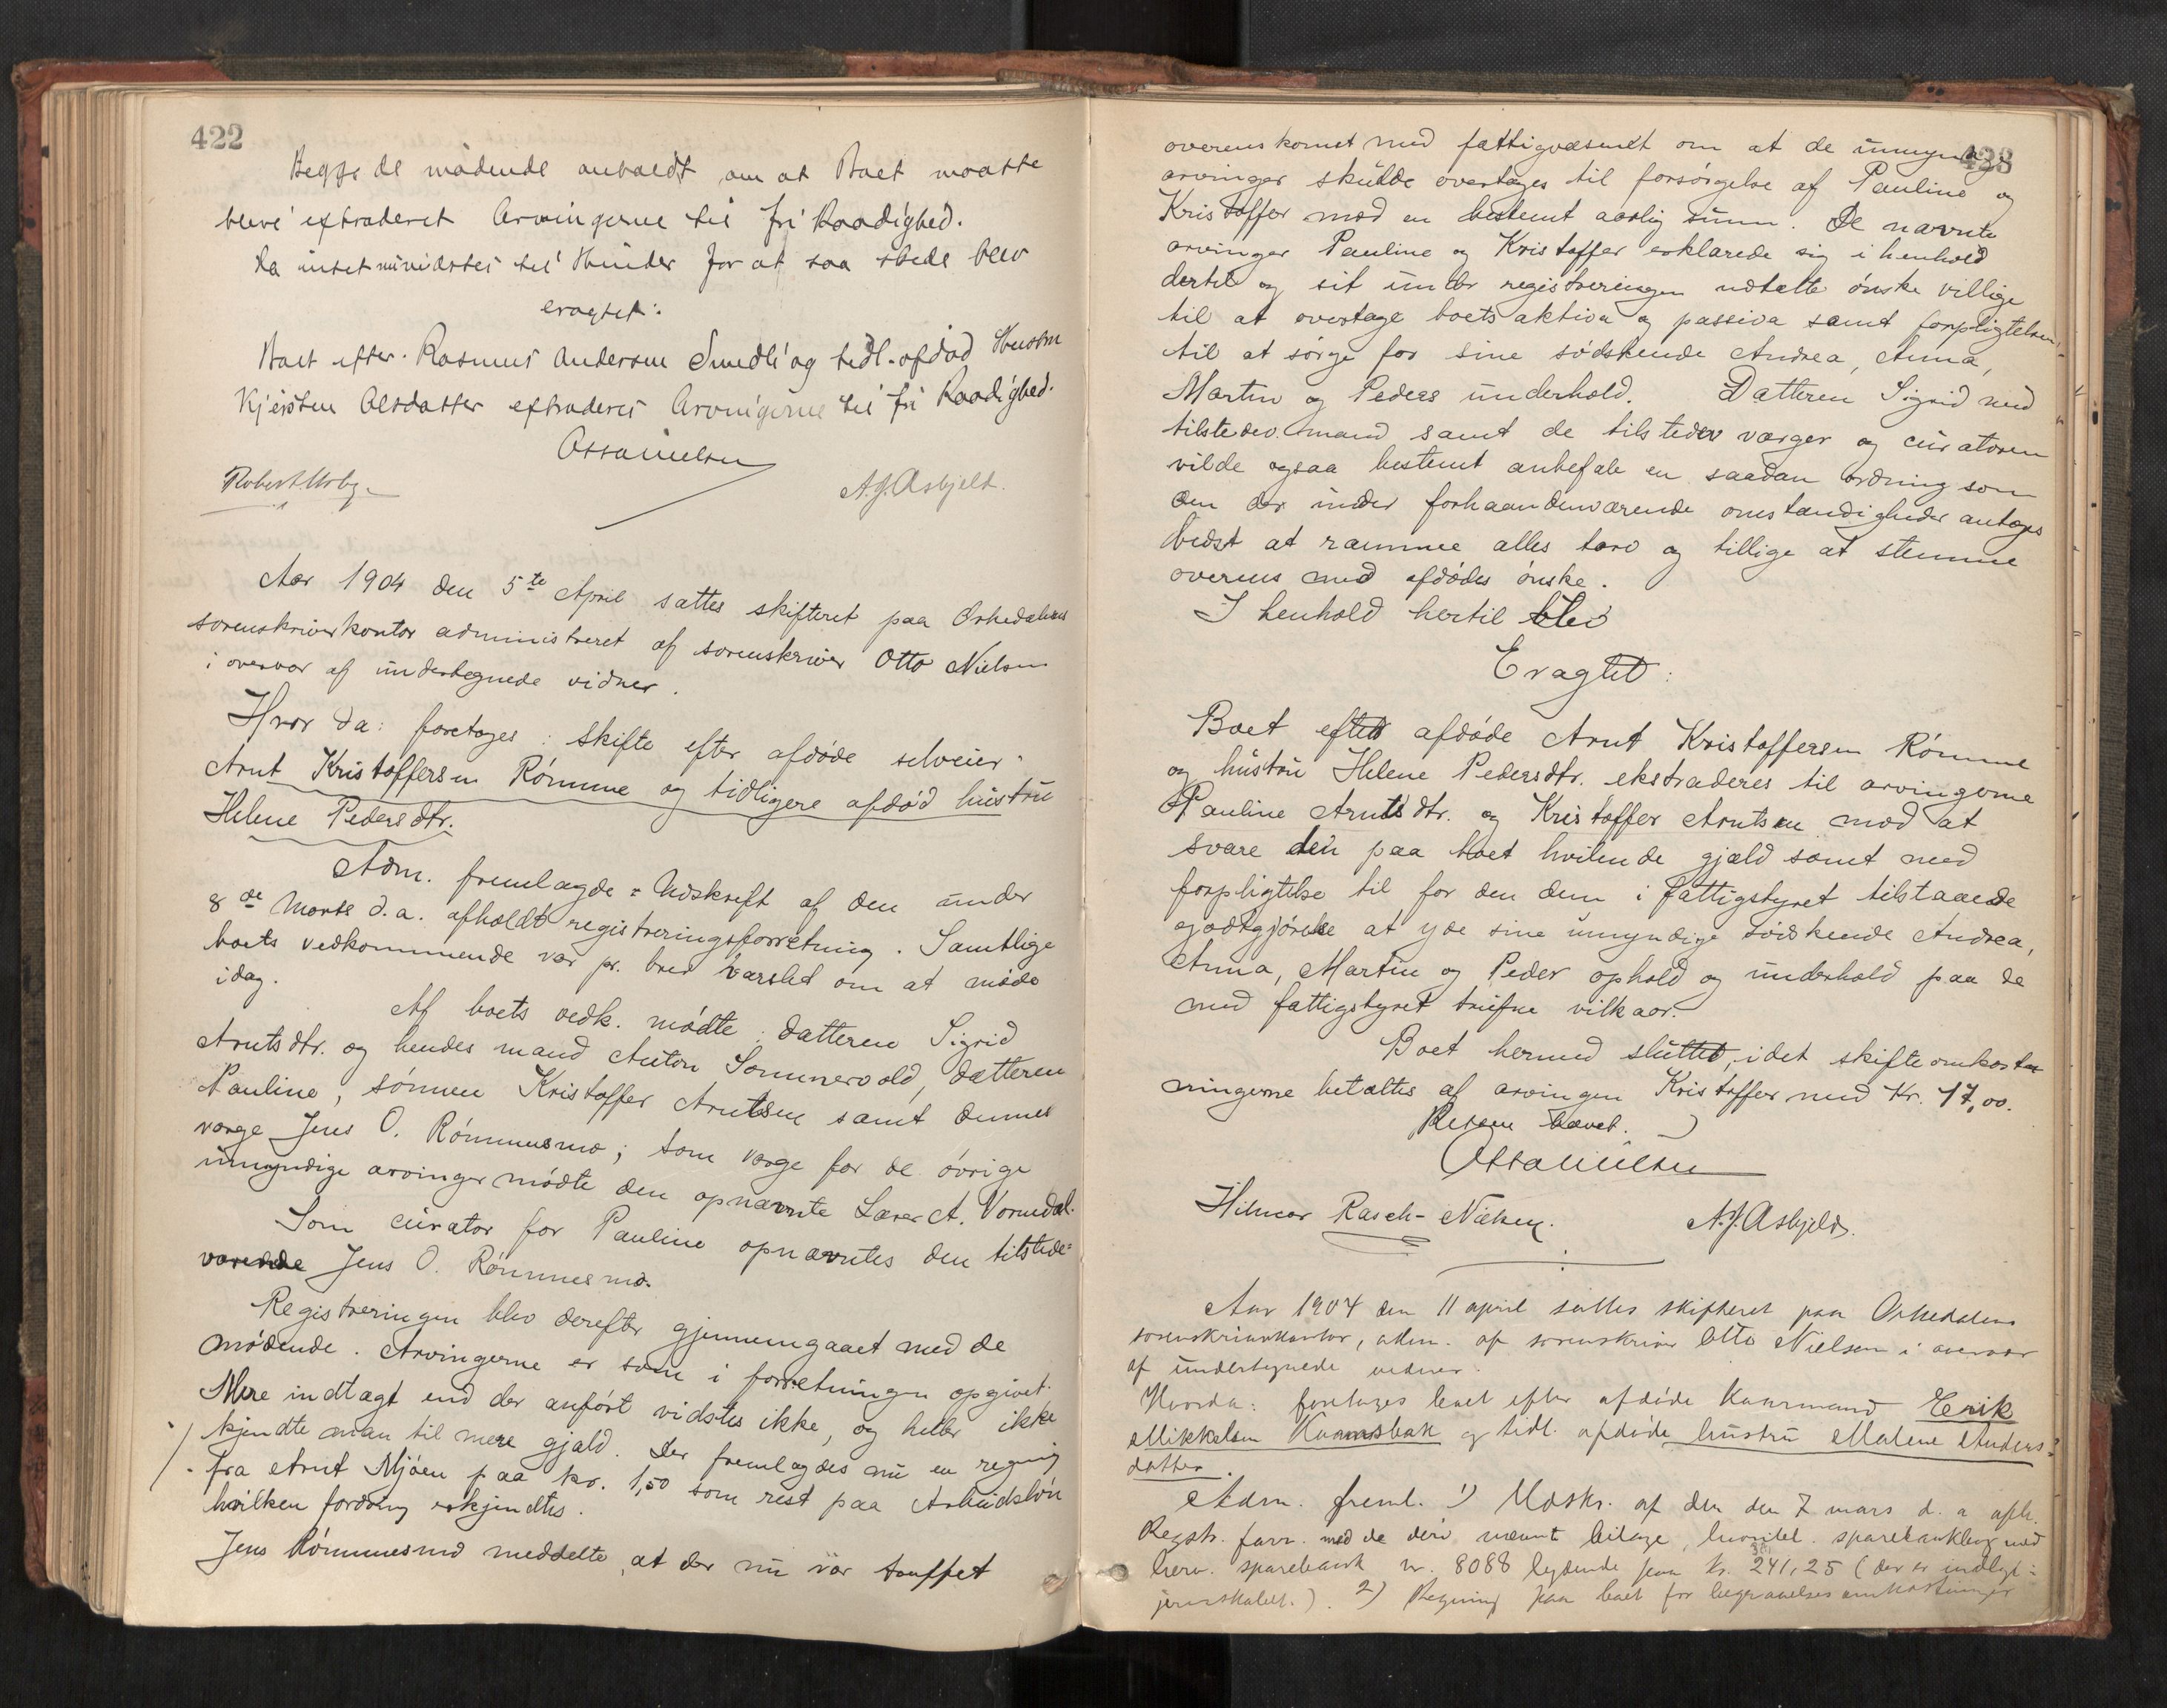 422
Begge de mødende anholdt om at Boet maatte
blive extraderet Arvingerne til fri Raadighed.
Da intet muvidstes til Hinder for at saa skede blev
eragtet:
Boet efter Rasmus Andersen Smedli og tidl. afdød Hustru
Kjersten Olsdatter extraderes Arvingerne til fri Raadighed.
Otto Nielsen
A.J. Asbjeld.
Aar 1904 den 5te April sattes skifteret paa Orkedalens
sorenskriverkontor administreret af sorenskriver Otto Nielsen
i overvær af undertegnede vidner.
Hvor da: foretoges: skifte efter afdøde selveier
Arnt Kristoffersen Rømme og tidligere afdød hustru
Helene Pedersdtr.
Adm. fremlagde: Udskrift af den under
8de Marts d.a. afholdt registreringsforretning. Samtlige
boets vedkommende var pr. brev varslet om at møde
idag.
Af boets vedk. mødte: datteren Sigrid
Arntsdtr. og hendes mand Anton Sommervold, datteren
Pauline, sønnen Kristoffer Arntsen samt dennes
værge Jens O. Rømmesmo; som værge for de øvrige
umyndige arvinger mødte den opnævnte Lærer A. Vormdal.
Som curator for Pauline opnævntes den tilstede=
værende Jens O. Rømmesmo.
Registreringen blev derefter gjennemgaaet med de
mødende. Arvingerne er som i forretningen opgivet.
Mere indtægt end der anført vidstes ikke, og heller ikke
kjendte man til mere gjæld. Der fremlagdes nu en regning
fra Arnt Mjøen paa kr. 1,50 som rest paa Arbeidsløn
hvilken fordring erkjendtes.
Jens Rømmesmo meddelte, at der nu var truffet
423
overenskomst med fattigvæsenet om at de umyndige
arvinger skulde overtages til forsørgelse af Pauline og
Kristoffer mod en bestemt aarlig sum. De nævnte
arvinger Pauline og Kristoffer erklærede sig i henhold
dertil og sit under registreringen udtalte ønske villige
til at overtage boets aktiva og passiva samt forpligtelsen
til at sørge for sine sødskende Andrea, Anna,
Martin og Peders underhold. Datteren Sigrid med
tilstedev. mand samt de tilstedev værger og curatoren
vilde ogsaa bestemt anbefale en saadan ordning som
den der under forhaandenværende omstændigheder antages
bedst at ramme alles tarv og tillige at stemme
overens med afdødes ønske.
I henhold hertil blev
Eragtet:
Boet efter afdøde Arnt Kristoffersen Rømme
og hustru Helene Pedersdtr. ekstraderes til arvingerne
Pauline Arntsdtr. og Kristoffer Arntsen mod at
svare den paa boet hvilende gjæld samt med
forpligtelse til for den dem i fattigstyret tilstaaede
godtgjørelse at yde sine umyndige søskende Andrea,
Anna, Martin og Peder ophold og underhold paa de
med fattigstyret trufne vilkaar.
Boet hermed sluttet, idet skifteomkost
ningerne betaltes af arvingen Kristoffer med Kr. 17,00.
Retten hævet.
Otto Nielsen
Hilmar Rasch-Nielsen. A.J. Asbjeld.
Aar 1904 den 11 april sattes skifteret paa Orkedalens
sorenskriverkontor, adm. af sorenskriver Otto Nielsen i overvær
af undertegnede vidner.
Hvorda: foretoges boet efter afdøde Kaarmand Erik
Mikkelsen og tidl. afdøde hustru Malene Anders=
datter.
Adm. freml. 1) Udskr. af den den 7 mars d. a afh.
Regstr. forr. med de deri nævnt bilage, sparebankbog med
sparebank nr. 8088 lydende paa kr. 241,25 (der er indlagt i
jernskabet.). 2) Regning paa boet for begravelsesomkostninger